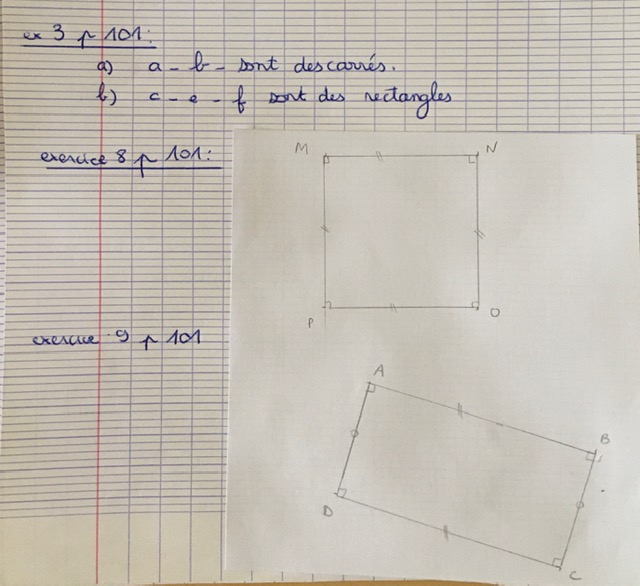 ex 3 p 101:
a) a - b - sont des carrés.
b) c - e - f sont des rectangles
exercice 8 p 101:
M N
P O
exercice 9 p 101
A
B
D
C